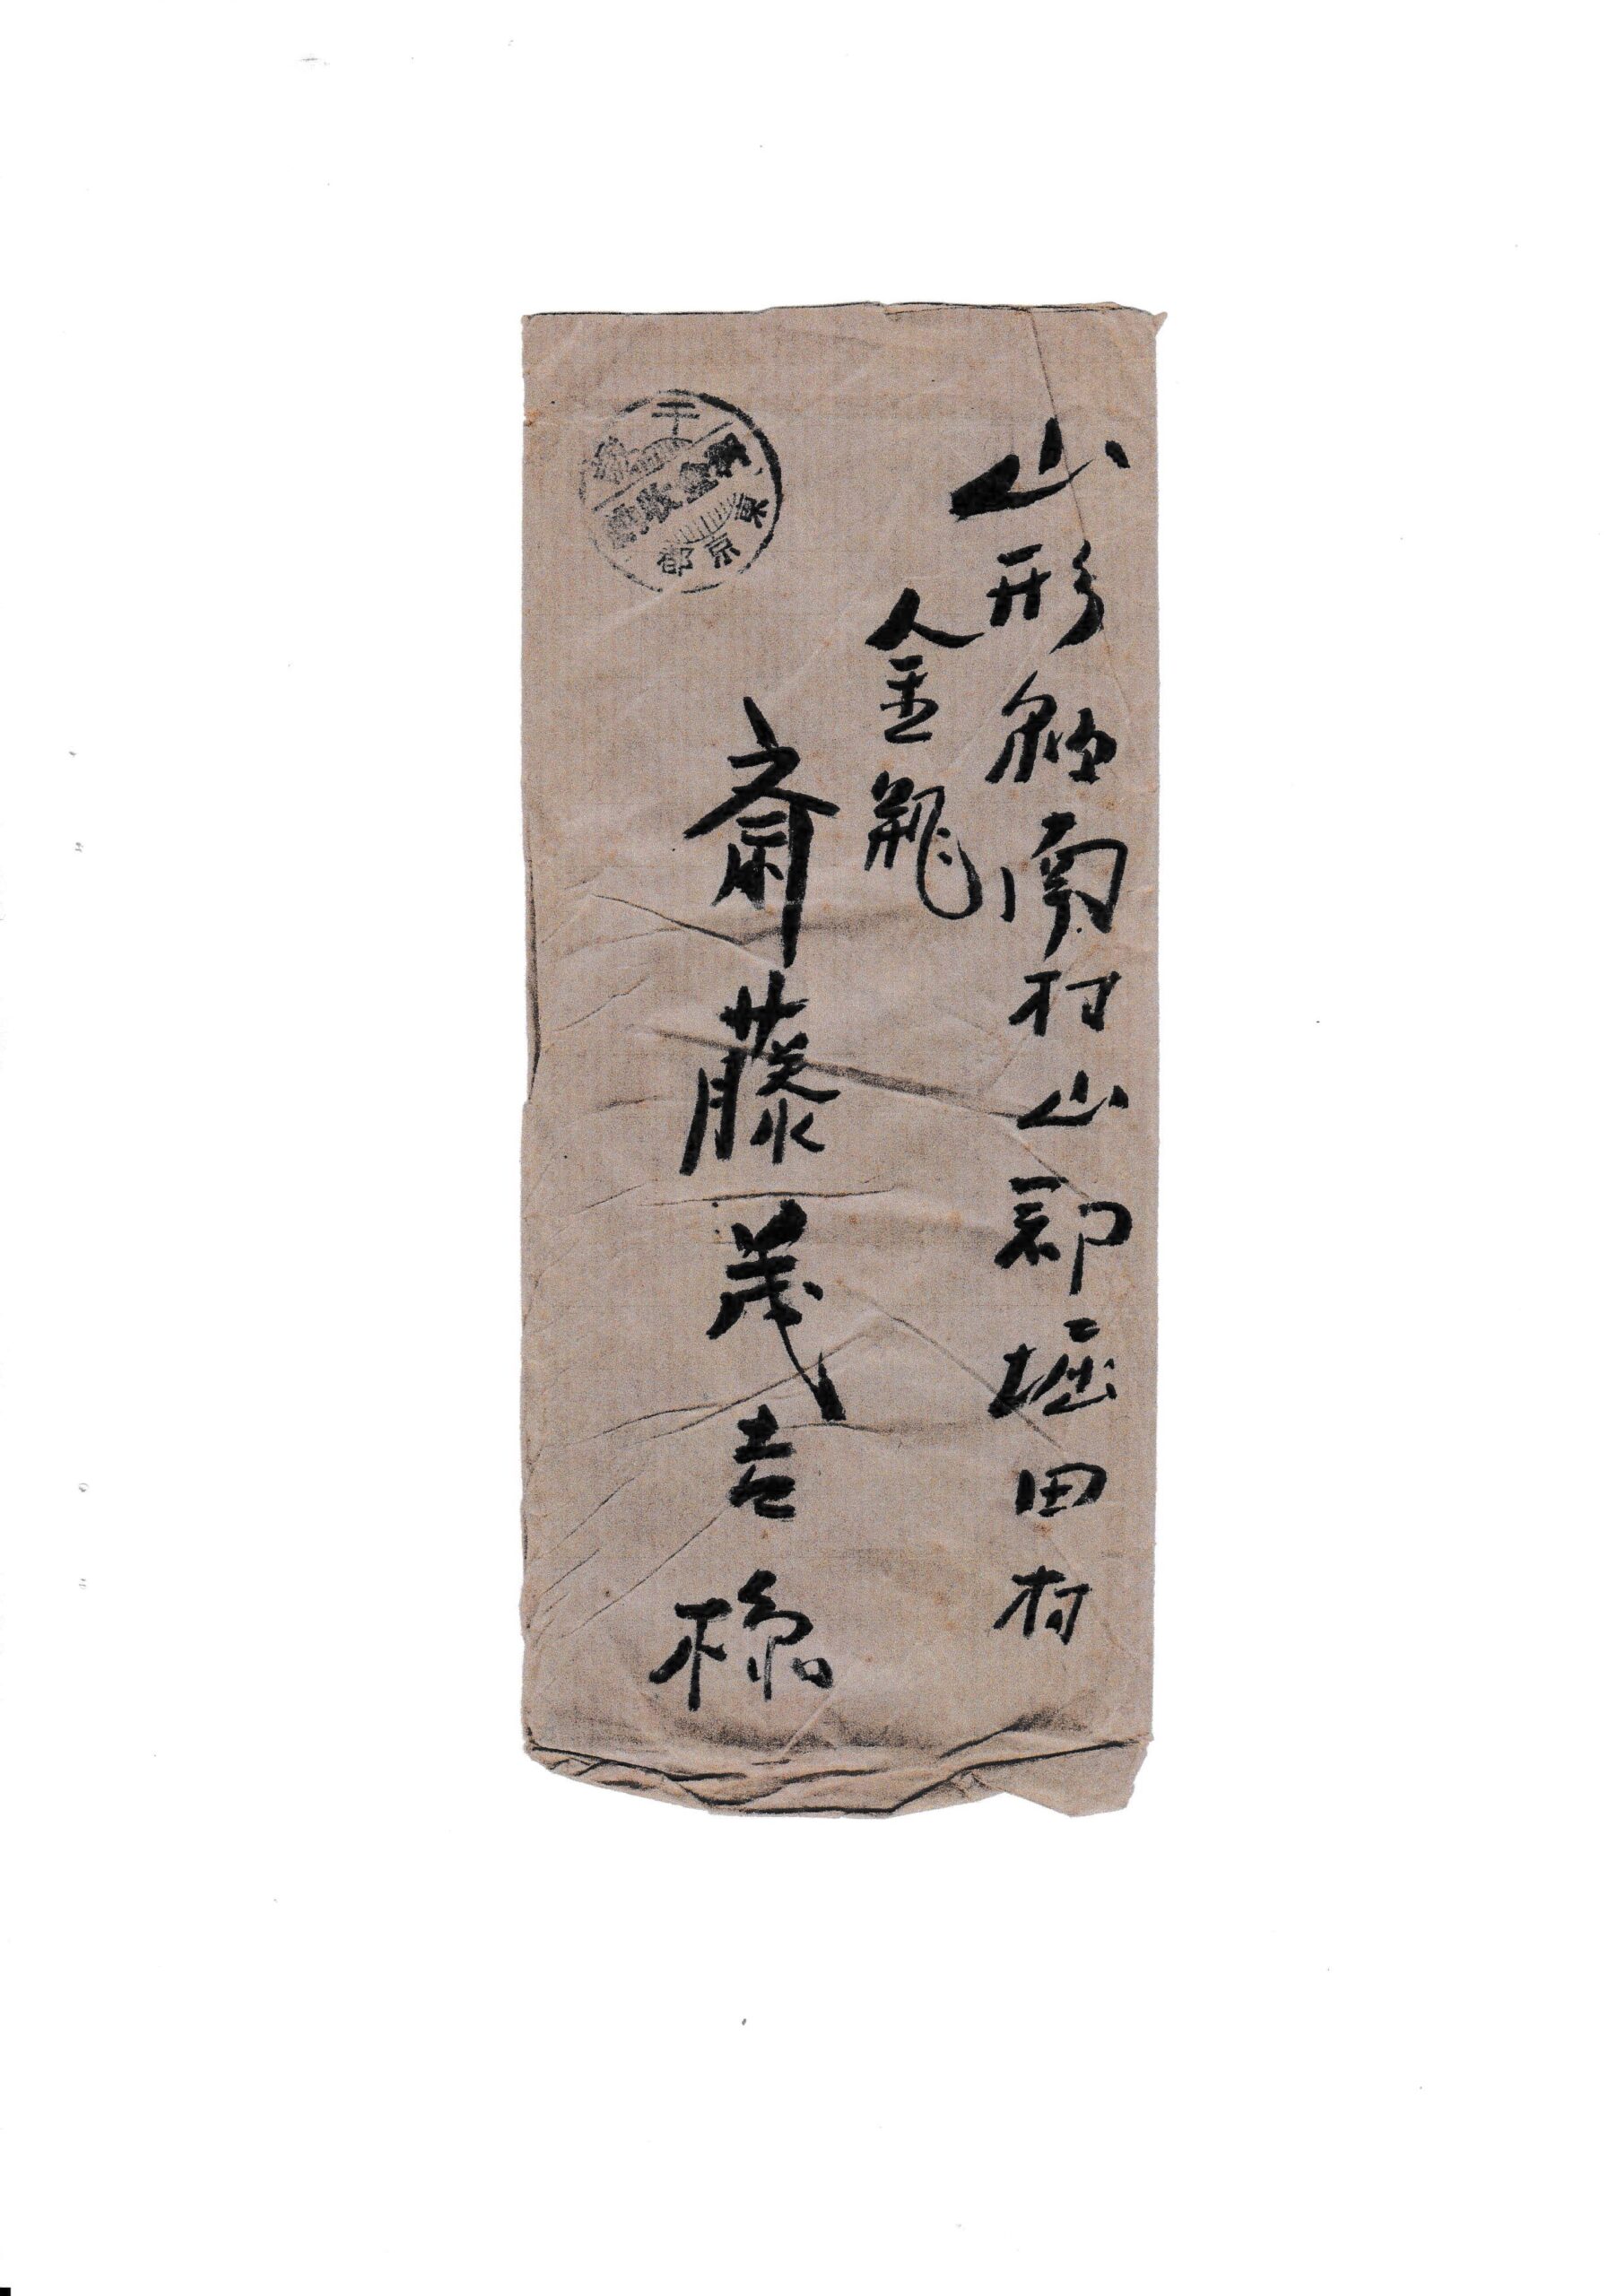 山形縣南村山郡堀田村
金瓶
斎藤茂吉様
千
料金收納
東京都